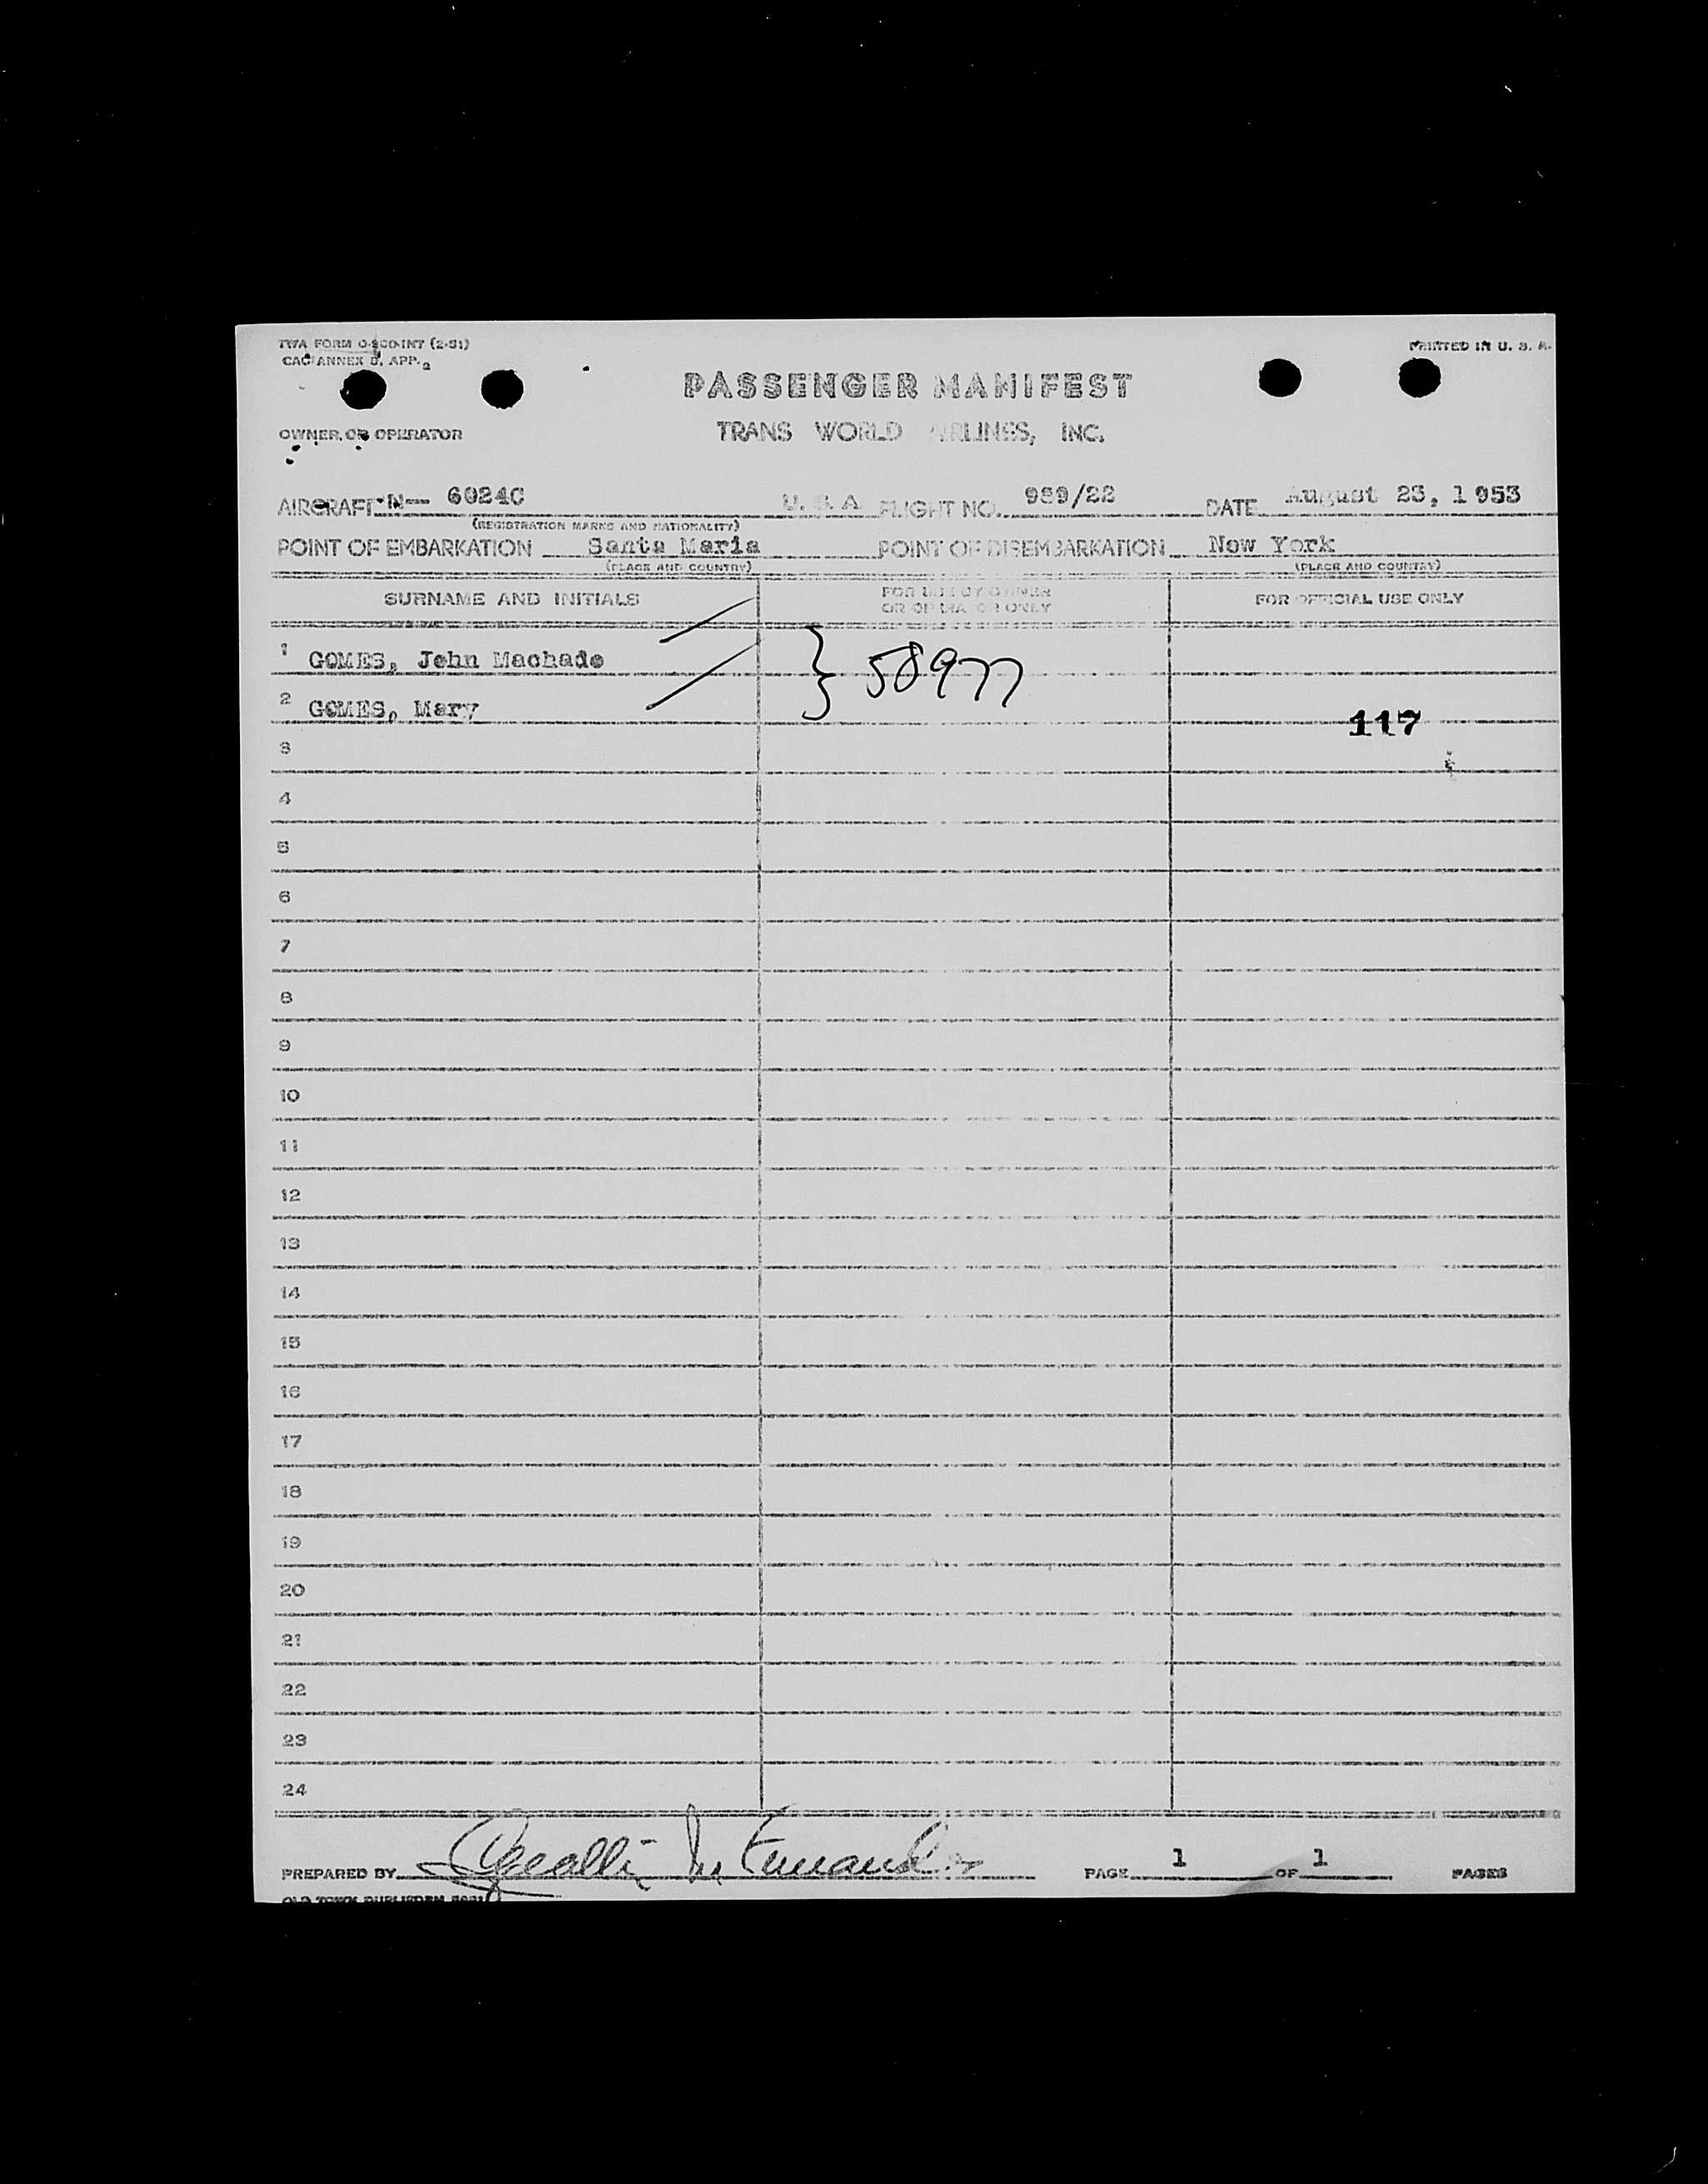 TWA FORM O-300-INT (2-51)
PRINTED IN U. S. A.
CAC ANNEX D, APP. 2
PASSENGER MANIFEST
OWNER OR OPERATOR TRANS WORLD AIRLINES, INC.
AIRCRAFT N— 6024C U. S. A. FLIGHT NO. 989/22 DATE August 23, 1953
(REGISTRATION MARKS AND NATIONALITY)
POINT OF EMBARKATION Santa Maria POINT OF DISEMBARKATION New York
(PLACE AND COUNTRY) (PLACE AND COUNTRY)
SURNAME AND INITIALS FOR USE BY OWNER OR OPERATOR ONLY FOR OFFICIAL USE ONLY
1 GOMES, John Machado
} 58977
2 GOMES, Mary
117
3
4
5
6
7
8
9
10
11
12
13
14
15
16
17
18
19
20
21
22
23
24
PREPARED BY PAGE 1 OF 1 PAGES
OLD TOWN